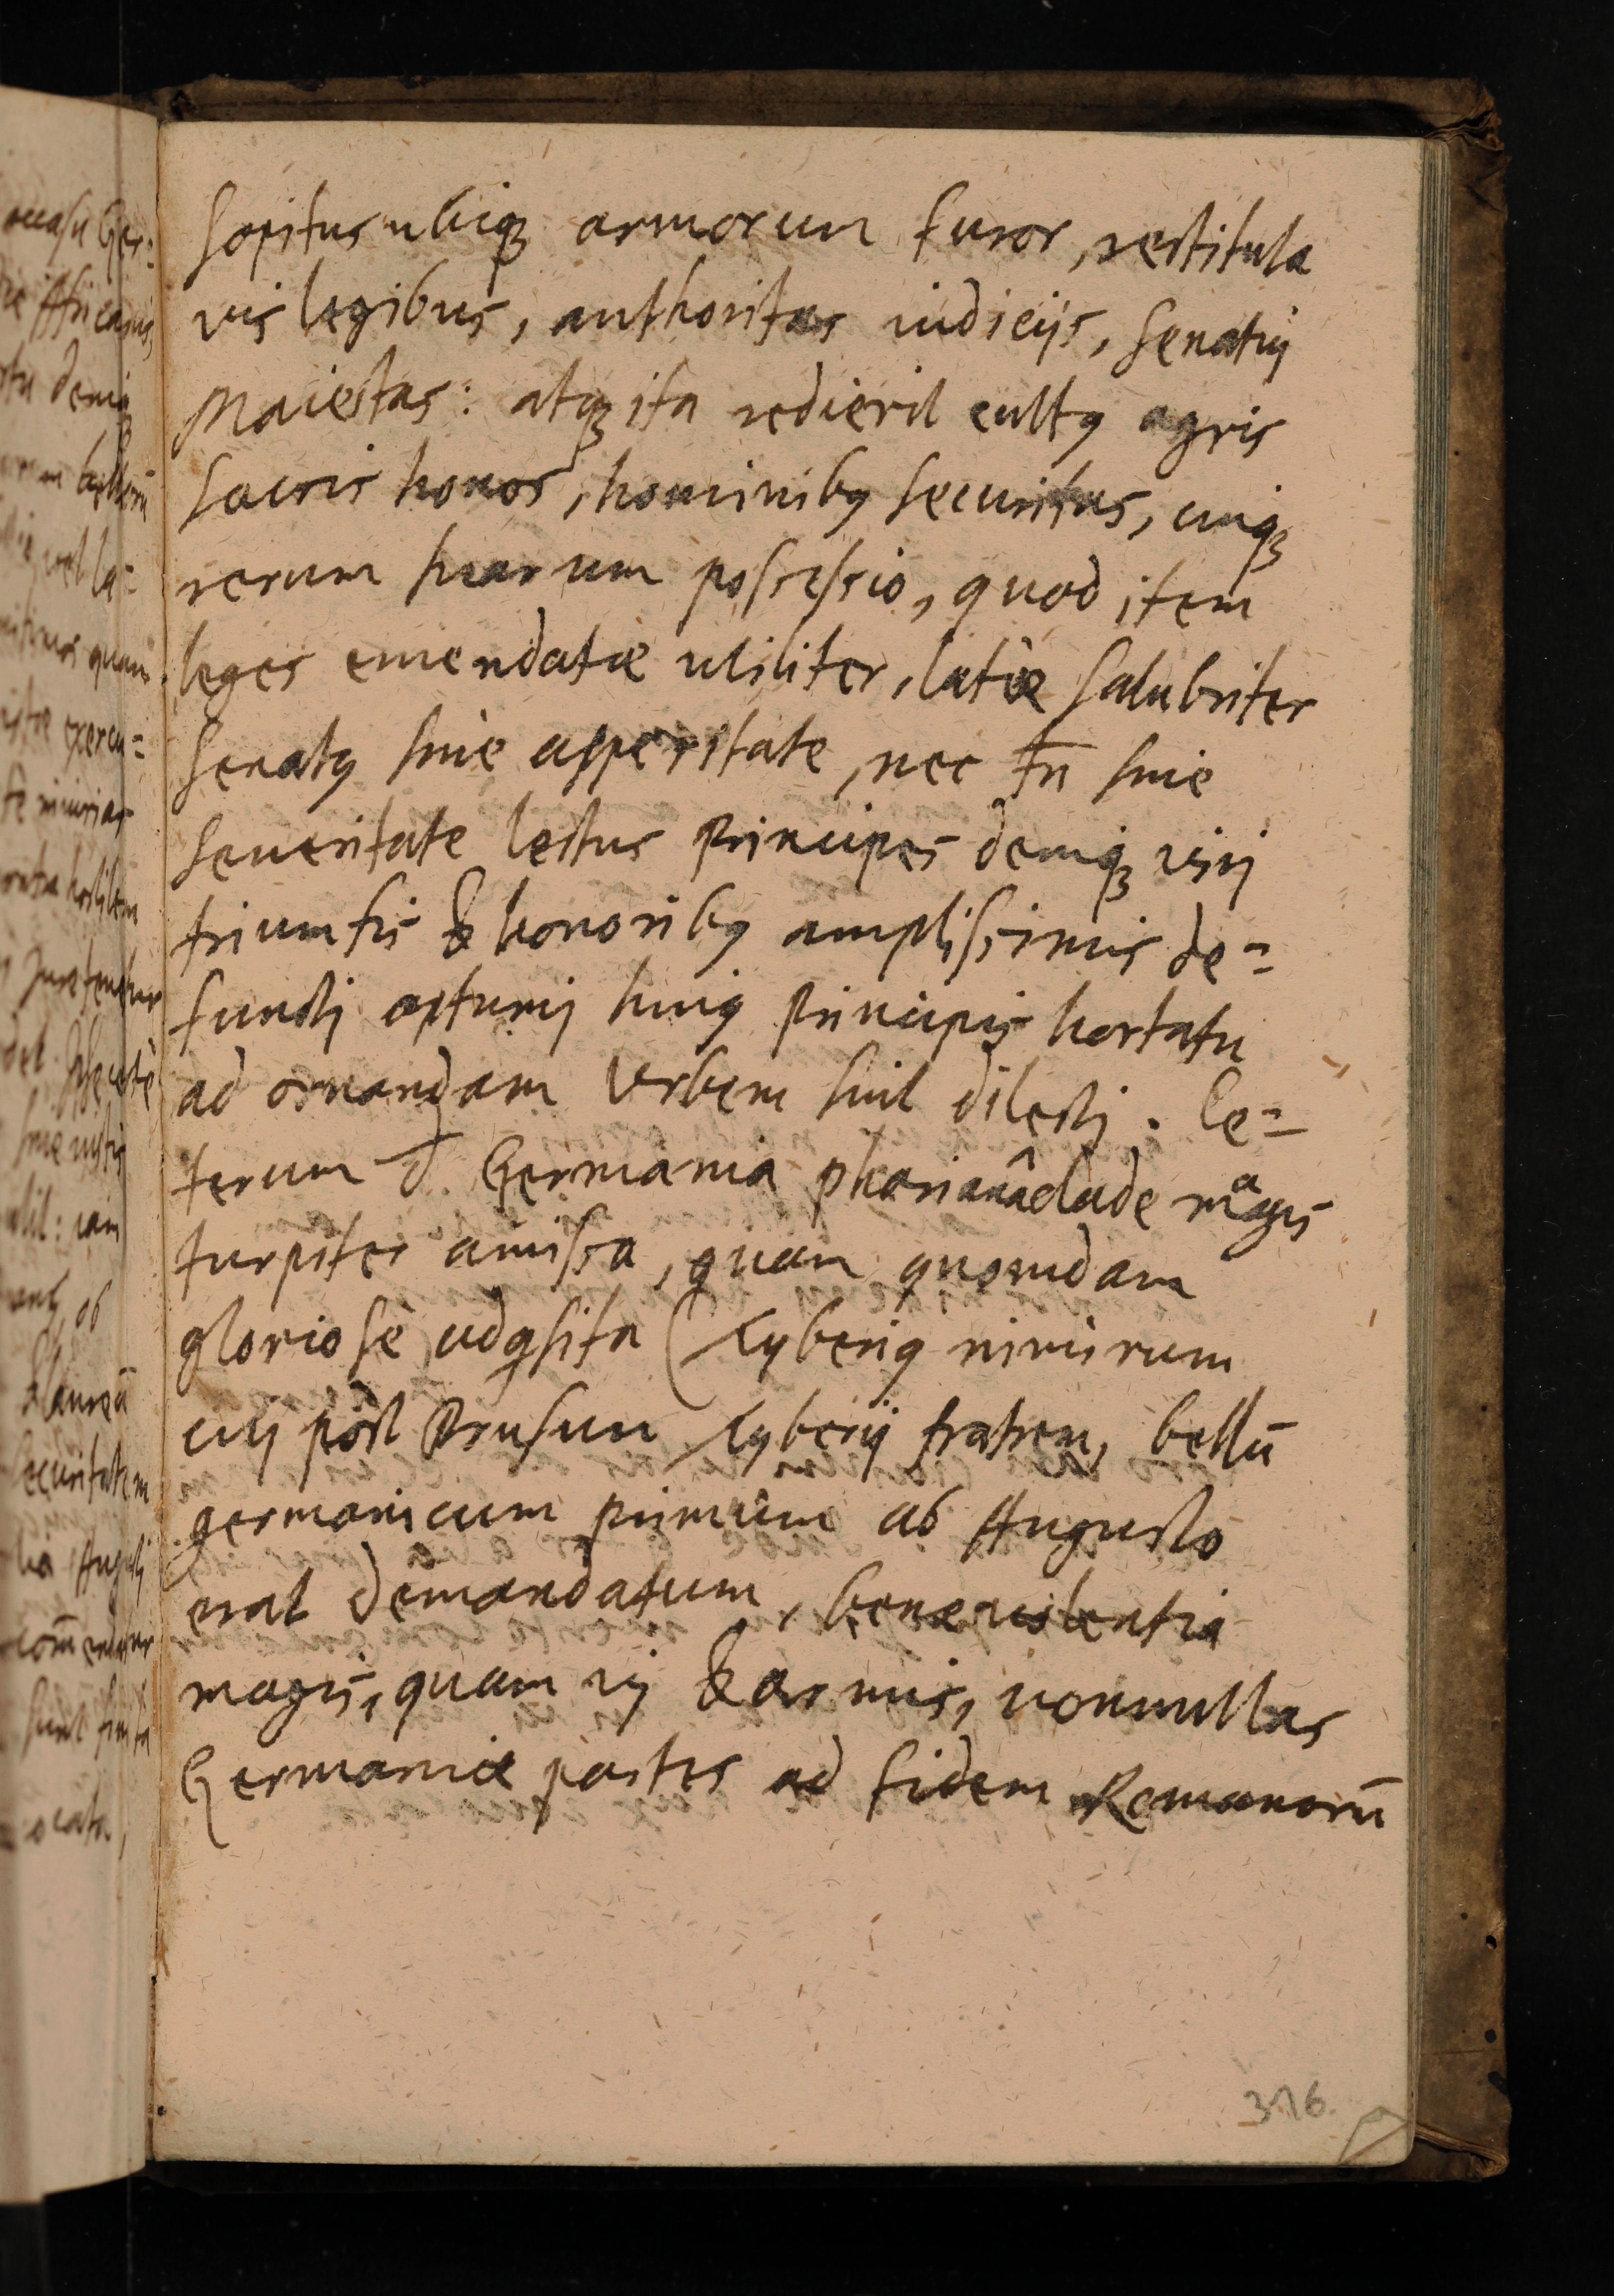 sopitus ubiqꝫ armorum furor, restituta
vis legibus, authoritas iudicijs, senatuj
Maiestas: atqꝫ ita redierit cultꝰ agris
sacris honos, hominibꝰ securitas, cuiqꝫ
rerum suarum possessio, quod item
leges emendatæ utiliter, latæ salubriter
senatꝰ sine asperitate, nec tn̄ sine
seueritate lectus Principes deniqꝫ virj
triumfis & honoribꝰ amplissimis de=
functj optimj huiꝰ Principis hortatu
ad ornandam Urbem sint dilectj. Ce=
terum d. Germania clade magis
turpiter amissa, quam quomdam
gloriosè adqsita (Tyberiꝰ nimirum
cuj pòst Drusum Tyberij fratrem, bellū
germanicum primùm ab Augusto
erat demandatum, beneuolentia
magis, quam vj & armis, nonnullas
Germaniæ partes ad fidem Romanorū
376.